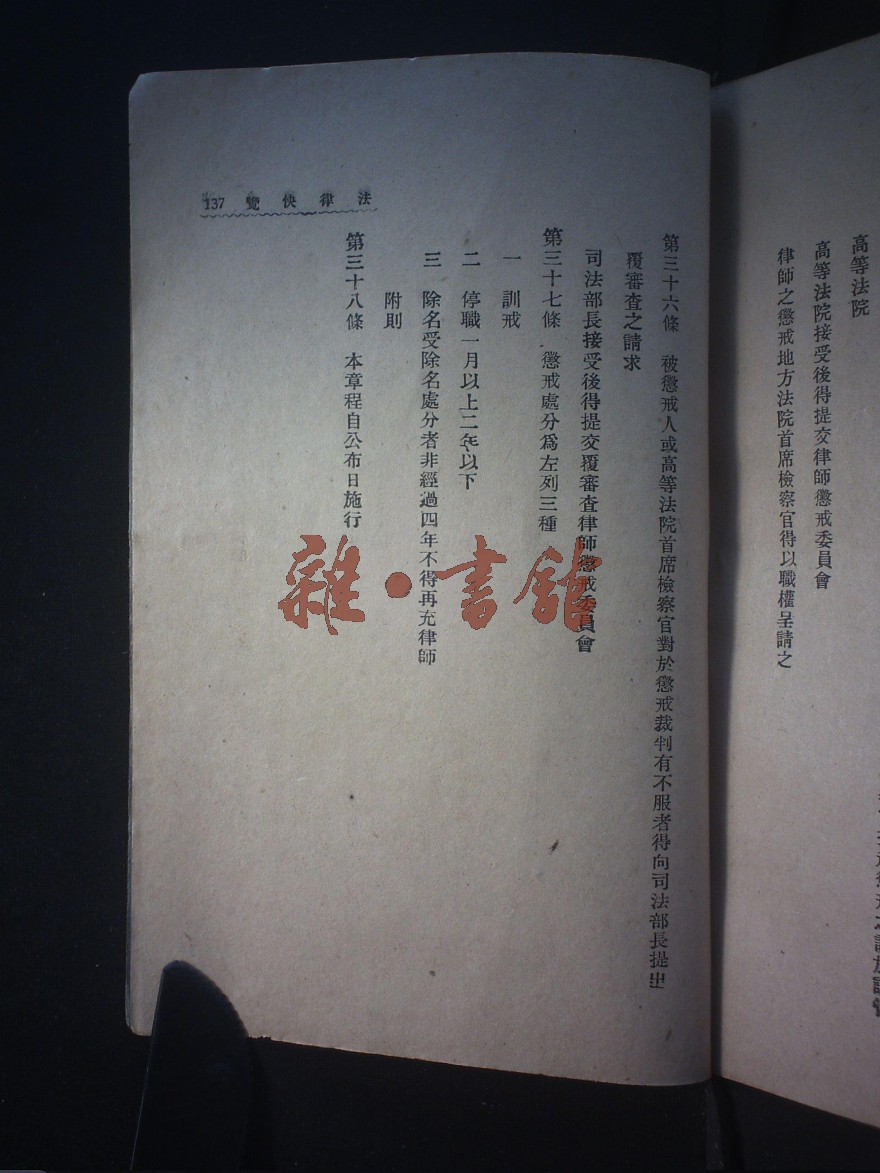 高等法院
高等法院接受後得提交律師懲戒委員會
律師之懲戒地方法院首席檢察官得以職權呈請之
法律快覽 137
第三十六條 被懲戒人或高等法院首席檢察官對於懲戒裁判有不服者得向司法部長提出
覆審查之請求
司法部長接受後得提交覆審查律師懲戒委員會
第三十七條 懲戒處分爲左列三種
一 訓戒
二 停職一月以上二年以下
三 除名受除名處分者非經過四年不得再充律師
附則
第三十八條 本章程自公布日施行
雜·書館